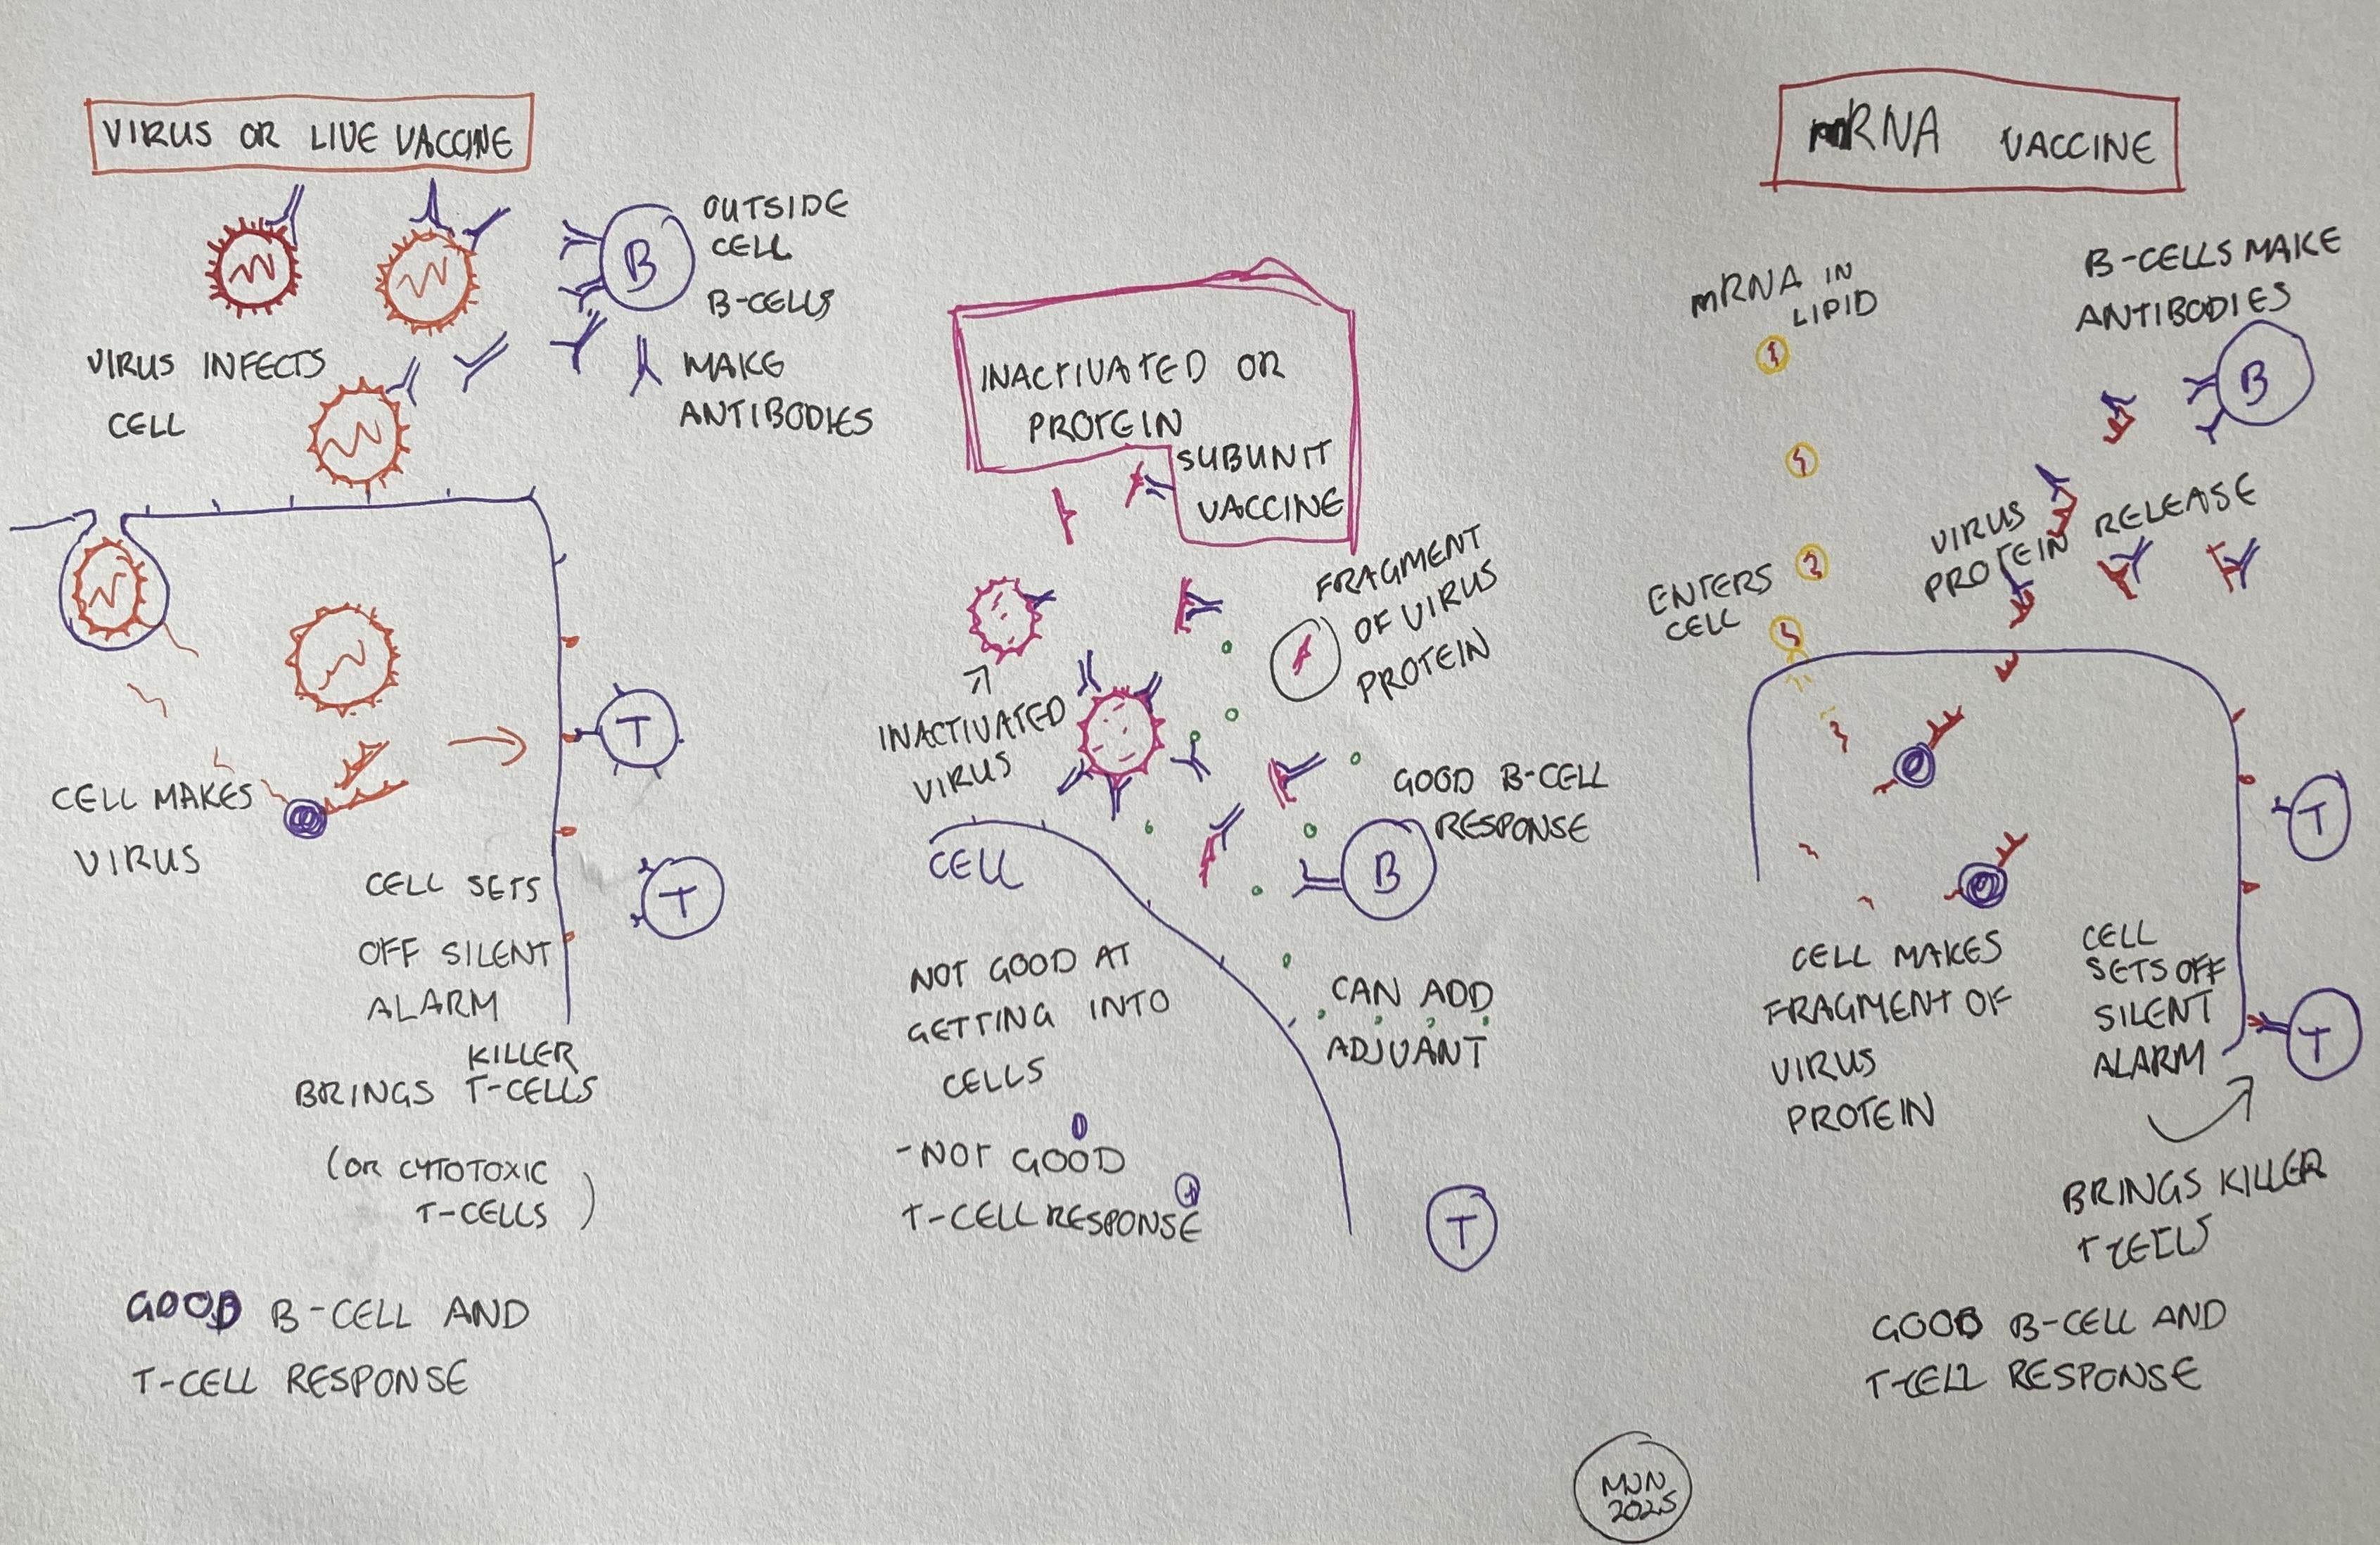 VIRUS OR LIVE VACCINE
B
OUTSIDE
CELL
B-CELLS
MAKE
ANTIBODIES
VIRUS INFECTS
CELL
T
CELL MAKES
VIRUS
T
CELL SETS
OFF SILENT
ALARM
KILLER
BRINGS T-CELLS
(OR CYTOTOXIC
T-CELLS)
GOOD B-CELL AND
T-CELL RESPONSE
INACTIVATED OR
PROTEIN
SUBUNIT
VACCINE
FRAGMENT
OF VIRUS
PROTEIN
INACTIVATED
VIRUS
GOOD B-CELL
RESPONSE
B
CELL
NOT GOOD AT
GETTING INTO
CELLS
-NOT GOOD
T-CELL RESPONSE
CAN ADD
ADJUVANT
T
mRNA VACCINE
mRNA IN
LIPID
B-CELLS MAKE
ANTIBODIES
B
VIRUS
PROTEIN RELEASE
ENTERS
CELL
T
CELL MAKES
FRAGMENT OF
VIRUS
PROTEIN
CELL
SETS OFF
SILENT
ALARM
T
BRINGS KILLER
T-CELLS
GOOD B-CELL AND
T-CELL RESPONSE
MJN
2025